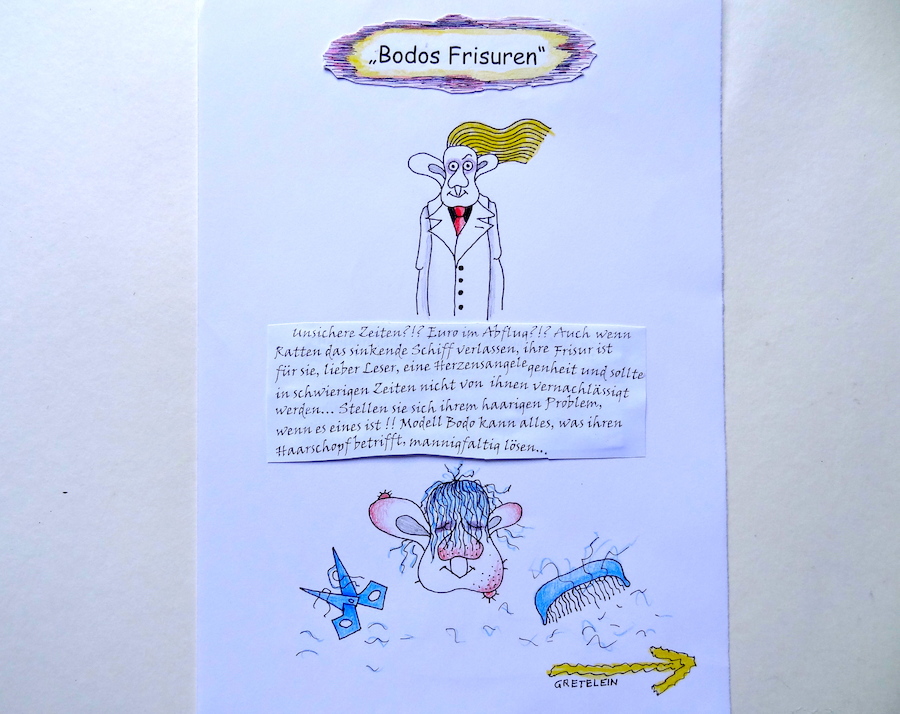 „Bodos Frisuren“
Unsichere Zeiten?!? Euro im Abflug?!? Auch wenn
Ratten das sinkende Schiff verlassen, ihre Frisur ist
für sie, lieber Leser, eine Herzensangelegenheit und sollte
in schwierigen Zeiten nicht von ihnen vernachlässigt
werden... Stellen sie sich ihrem haarigen Problem,
wenn es eines ist!! Modell Bodo kann alles, was ihren
Haarschopf betrifft, mannigfaltig lösen...
GRETELEIN